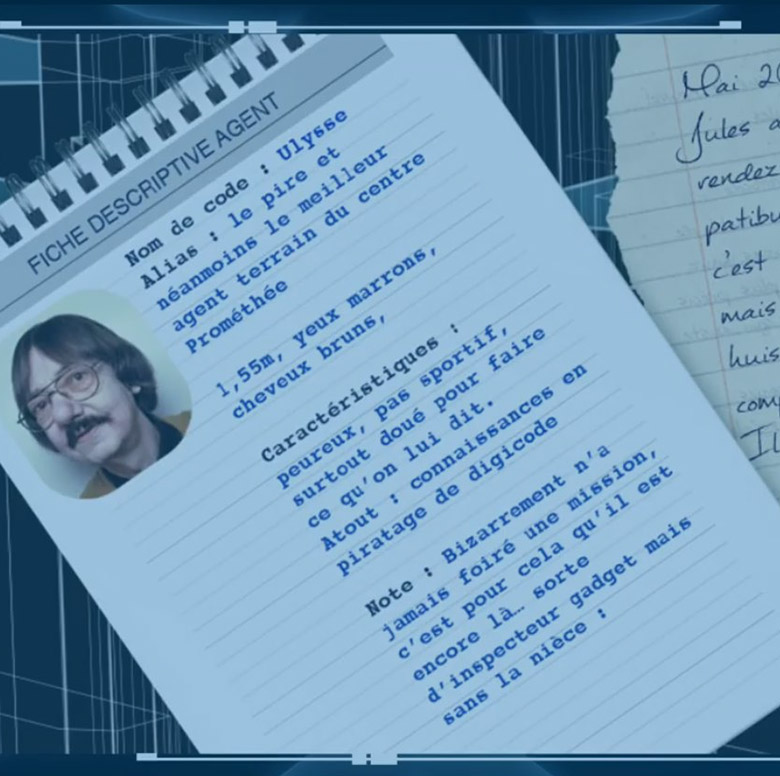 FICHE DESCRIPTIVE AGENT
Nom de code : Ulysse
Alias : le pire et
néanmoins le meilleur
agent terrain du centre
Prométhée
1,55m, yeux marrons,
cheveux bruns,
Caractéristiques :
peureux, pas sportif,
surtout doué pour faire
ce qu'on lui dit.
Atout : connaissances en
piratage de digicode
Note : Bizarrement n'a
jamais foiré une mission,
c'est pour cela qu'il est
encore là… sorte
d'inspecteur gadget mais
sans la nièce :
Mai 20
Jules a
rendez
patibu
c'est
mais
huis
comp